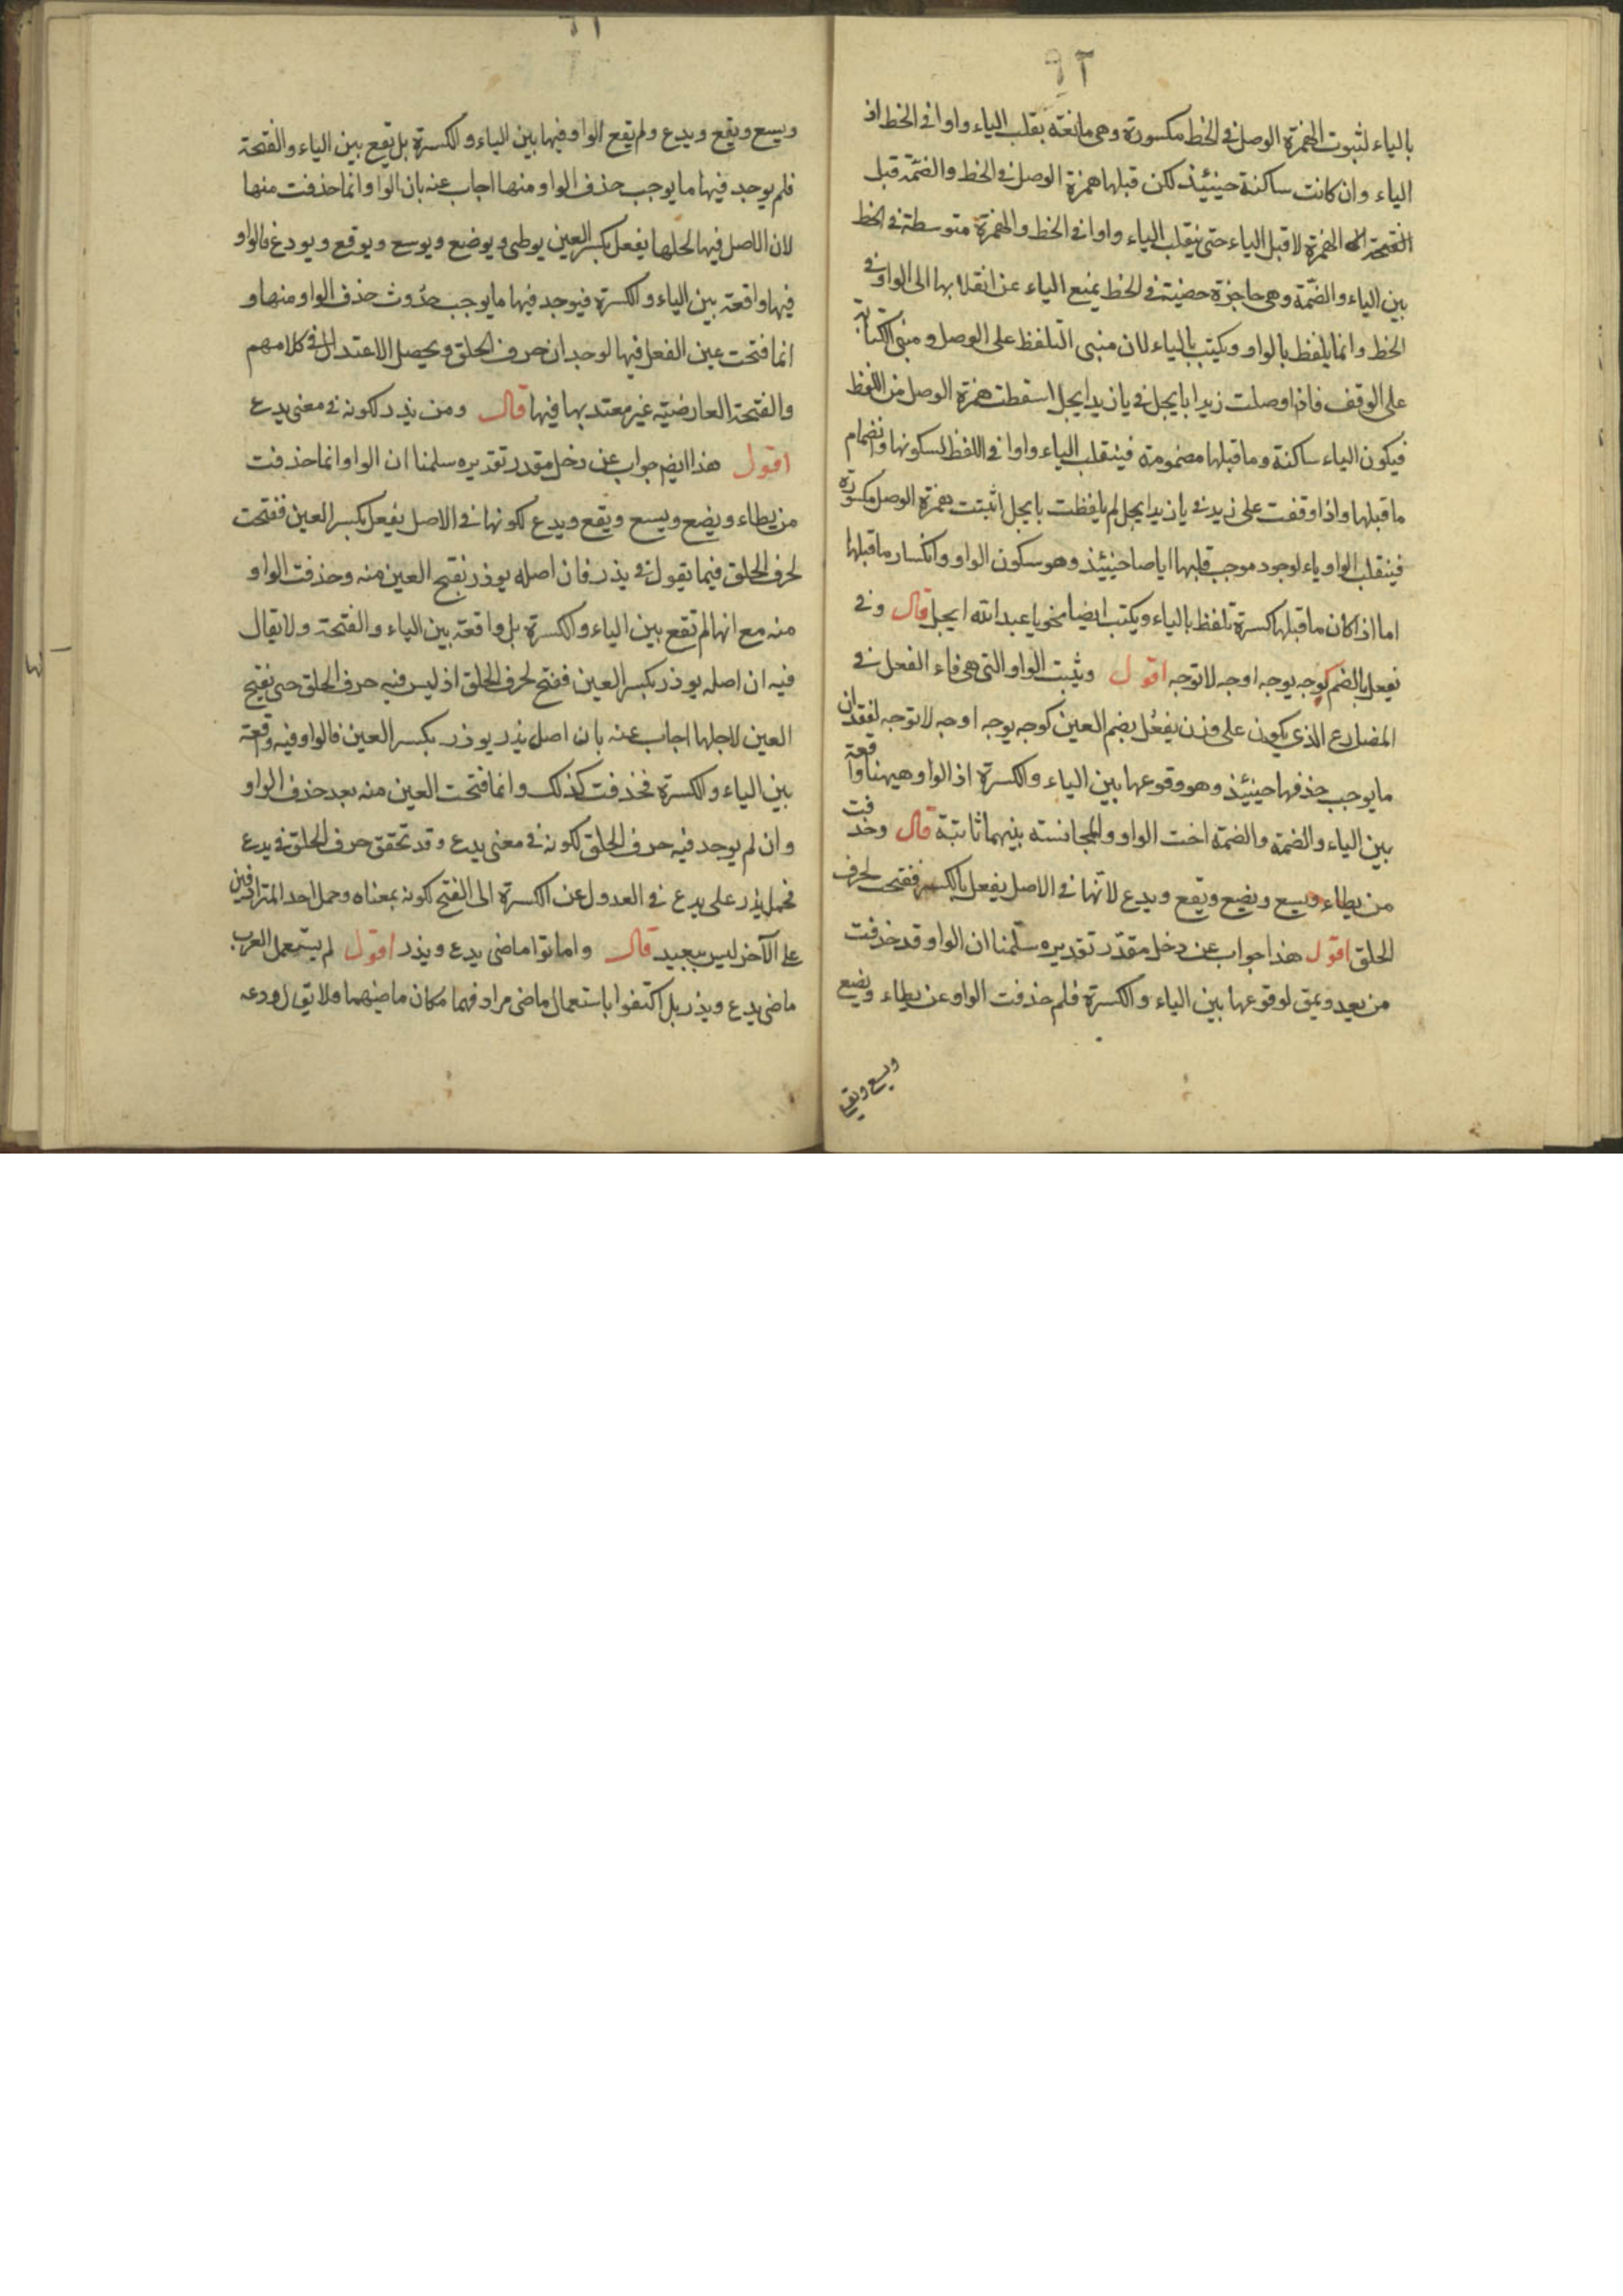 ٩٢
بالياء لثبوت الهمزة الوصل فى الخط مكسورة وهى مانعة بقلب الياء واوا فى الخط اذ
الياء وان كانت ساكنة حينئذ لكن قبلها همزة الوصل فى الخط والضمّة قبل
الهمزة لا قبل الياء حتى ينقلب الياء واوا فى الخط والهمزة متوسطة فى الخط
بين الياء والضمّة وهى حاجزة حضينة فى الخط يمنع الياء عن انقلابها الى الواو فى
الخط وانما يلفظ بالواو ويكتب بالياء لان مبنى التلفظ على الوصل ومبنى الكتابة
على الوقف فاذا وصلت زيدا بايجل فى يا زيد ايجل اسقطت همزة الوصل من اللفظ
فيكون الياء ساكنة وما قبلها مضمومة فينقلب الياء واوا فى اللفظ لسكونها وانضمام
ما قبلها واذا وقفت على زيد فى يا زيد ايجل لم يلفظت بايجل اثبتت همزة الوصل مكسورة
فينقلب الواو ياء لوجود موجب قلبها اياصا حينئذ وهو سكون الواو وانكسار ما قبلها
اما اذا كان ما قبلها كسرة تلفظ بالياء ويكتب ايضا نحو يا عبد الله ايجل قال وفى
يفعل بالضم كوجه يوجه اوجه لا توجه اقول ويثبت الواو التى هى فاء الفعل فى
المضارع الذى يكون على وزن يفعُل بضم العين كوجه يوجه اوجه لا توجه لفقدان
ما يوجب حذفها حينئذ وهو وقوعها بين الياء والكسرة اذ الواو هيهنا واقعة
بين الياء والضمة والضمة اخت الواو والمجانسة بينهما ثابتة قال وحذفت
من يطاء ويسع ويضع ويقع ويدع لانّها فى الاصل يفعل بالكسر ففتحت لحرف
الحلق اقول هذا جواب عن دخل مقدّر تقديره سلّمنا ان الواو قد حذفت
من يعد ويمق لوقوعها بين الياء والكسرة فلم حذفت الواو عن يطاء ويضع
ويسع ويقع
ويسع ويقع ويدع ولم يقع الواو فيها بين الياء والكسرة بل يقع بين الياء والفتحة
فلم يوجد فيها ما يوجب حذف الواو منها اجاب عنه بان الواو انما حذفت منها
لان الاصل فيها لحلها يفعل بكسر العين يوطى ويوضع ويوسع ويوقع ويودع فالواو
فيها واقعة بين الياء والكسرة فيوجد فيها ما يوجب حدوث حذف الواو منها و
انما فتحت عين الفعل فيها لوجدان حرف الحلق ويحصل الاعتدال فى كلامهم
والفتحة العارضيّه غير معتد بها فيها قال ومن يذر لكونه فى معنى يدع
اقول هذا ايضم جواب عن دخل مقدر تقديره سلمنا ان الواو انما حذفت
من يطاء ويضع ويسع ويقع ويدع لكونها فى الاصل يفعل بكسر العين ففتحت
لحرف الحلق فيما تقول فى يذر فان اصله يوذر بفتح العين منه وحذفت الواو
منه مع انها لم تقع بين الياء والكسرة بل واقعة بين الياء والفتحة ولا يقال
فيه ان اصله يوذر بكسر العين ففتح لحرف الحلق اذ ليس فيه حرف الحلق حتى يفتح
العين لاجلها اجاب عنه بان اصل يذر يوذر بكسر العين فالواو فيه وقعة
بين الياء والكسرة فحذفت كذلك وانما فتحت العين منه بعد حذف الواو
وان لم يوجد فيه حرف الحلق لكونه فى معنى يدع وقد تحقق حرف الحلق فى يدع
فحمل يذر على يدع فى العدول عن الكسرة الى الفتح لكونه بمعناه وحمل احد المترادفين
على الآخر ليس ببعيد قال واماتوا ماضى يدع ويذر اقول لم يستعمل العرب
ماضى يدع ويذر بل اكتفوا باستعمال ماضى مرادفهما مكان ماضيهما ولا يق ل ودعه